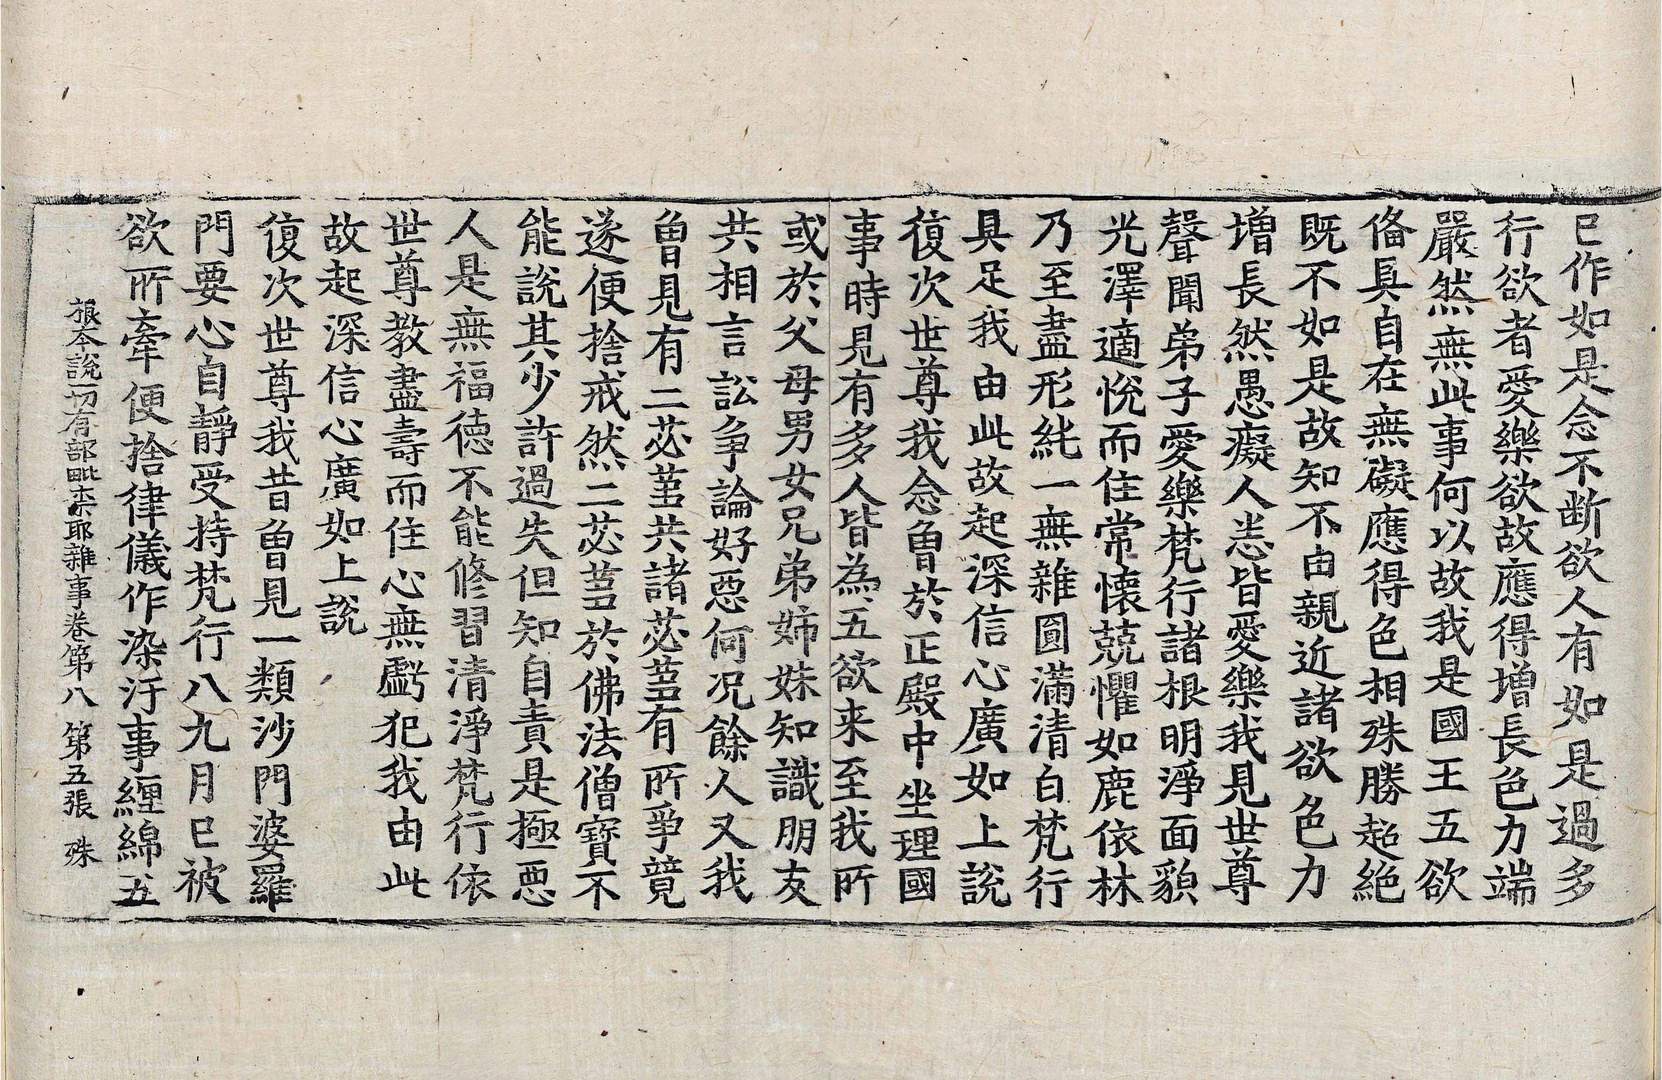 已作如是念不斷欲人有如是過多
行欲者愛樂欲故應得增長色力端
嚴然無此事何以故我是國王五欲
俻具自在無礙應得色相殊勝超絶
既不如是故知不由親近諸欲色力
增長然愚癡人恙皆愛樂我見世尊
聲聞弟子愛樂梵行諸根明淨面貌
光澤適悅而住常懷兢懼如鹿依林
乃至盡形純一無雜圓滿清白梵行
具足我由此故起深信心廣如上說
復次世尊我念曽於正殿中坐理國
事時見有多人皆為五欲来至我所
或於父母男女兄弟姊妹知識朋友
共相言訟爭論好惡何况餘人又我
曽見有二苾蒭共諸苾蒭有所爭競
遂便捨戒然二苾蒭於佛法僧寶不
能說其少許過失但知自責是極惡
人是無福德不能修習清淨梵行依
世尊教盡壽而住心無虧犯我由此
故起深信心廣如上說
復次世尊我昔曽見一類沙門婆羅
門要心自靜受持梵行八九月已被
欲所牽便捨律儀作染汙事纏綿五
根本說一切有部毗奈耶雜事卷第八 第五張 殊